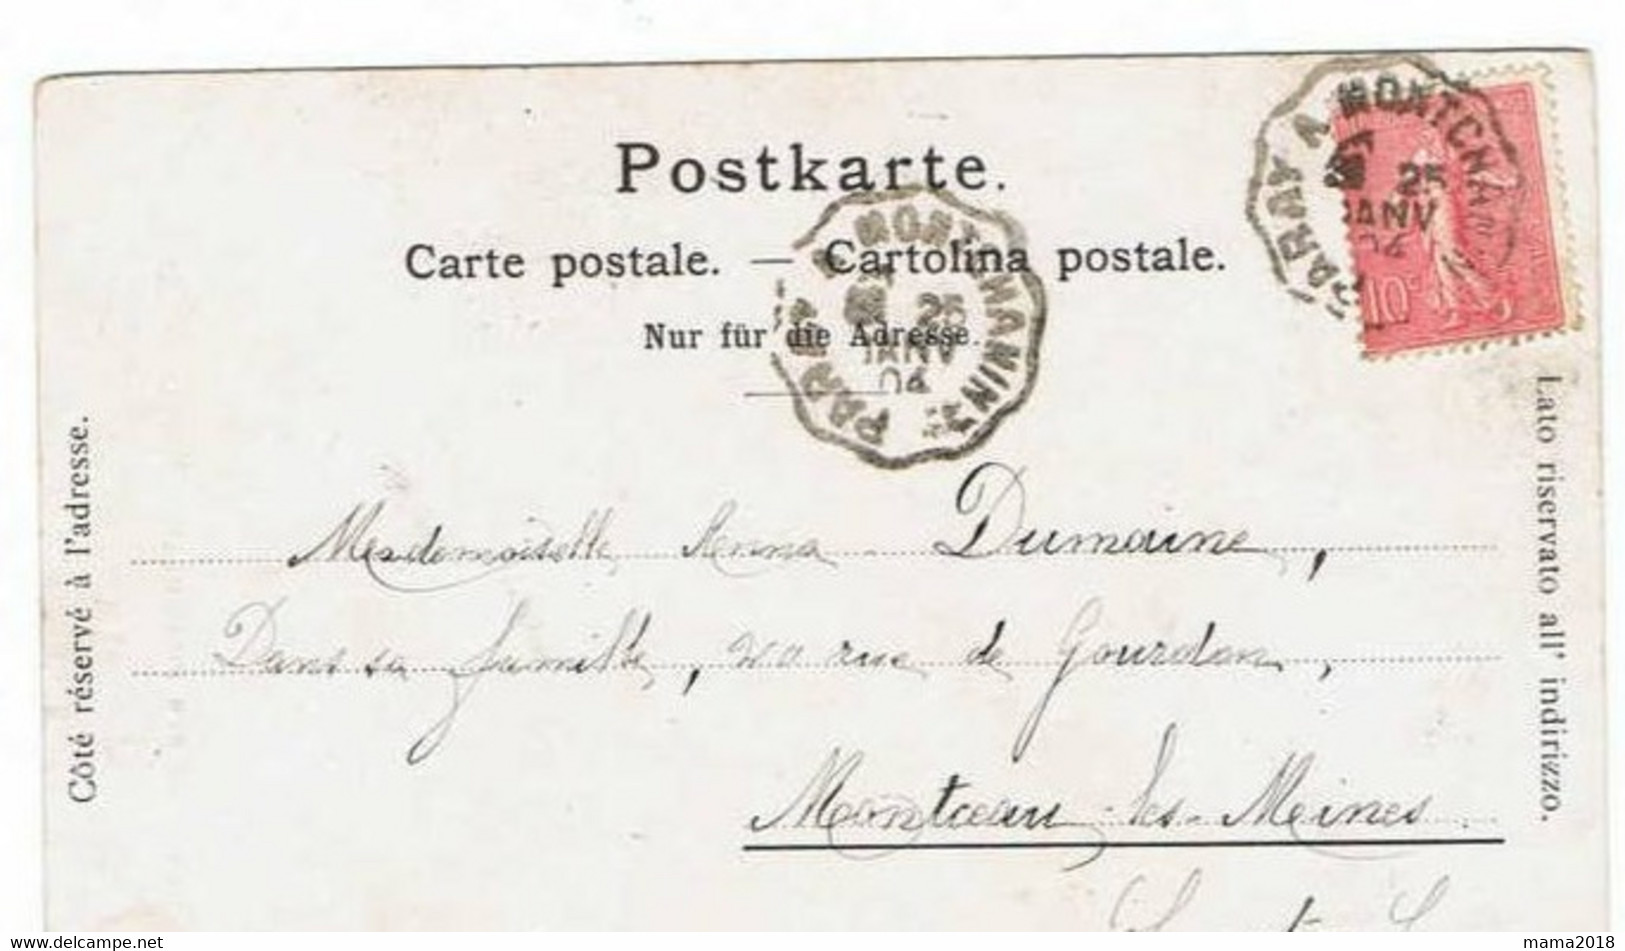 Postkarte.
Carte postale. — Cartolina postale.
Nur für die Adresse.
PARAY A MONTCHANIN
25
JANV
04
PARAY A MONTCHANIN
25
JANV
04
10
Côté réservé à l'adresse.
Lato riservato all' indirizzo.
Mesdemoiselle Dumaine,
Dans sa famille, rue de Gourdon,
Montceau-les-Meines
mama2018